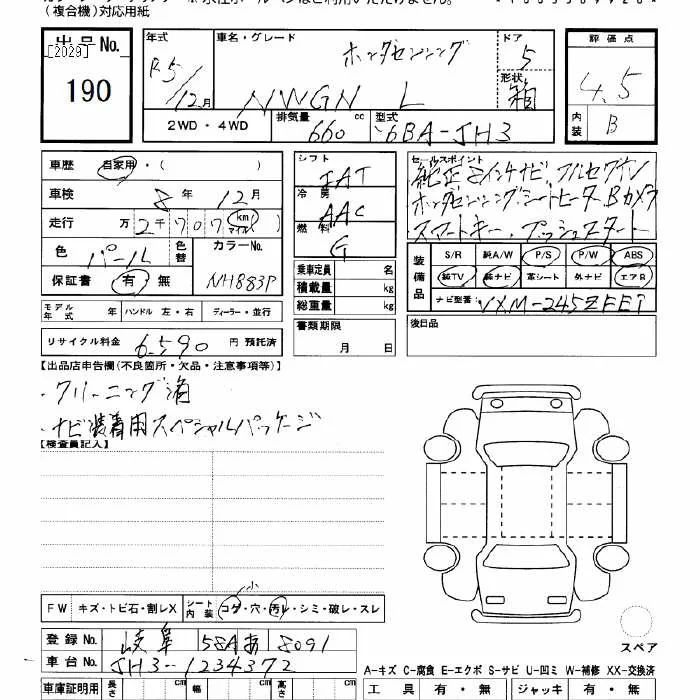 (複合機)対応用紙
出品No. 年式 車名・グレード ホンダセンシング ドア 5 評価点
[2029] R5/12月 NWGN L 形状 箱 4.5
190 2WD・4WD 排気量 660 cc 型式 6BA-JH3 内装 B
車歴 自家用・( ) シフト IAT セールスポイント 純正8インチナビ フルセグTV
車検 8年 12月 冷房 AAC ホンダセンシング シートヒーター Bカメラ
走行 万 2千707 km マイル 燃料 G スマートキー プッシュスタート
色 パール 色替 カラーNo. NH883P 装備品 S/R 純A/W P/S P/W ABS
保証書 有・無 乗車定員 名 純TV 純ナビ 革シート 外ナビ エアB
積載量 kg ナビ型番: VXM-245ZFEi
モデル年式 年 ハンドル 左・右 ディーラー・並行 総重量 kg
リサイクル料金 6590 円 預託済 書類期限 月 日 後日品
【出品店申告欄(不良箇所・欠品・注意事項等)】
・クリーニング済
・ナビ装着用スペシャルパッケージ
【検査員記入】
小
FW キズ・トビ石・割レX シート内装 コゲ・穴・汚レ・シミ・破レ・スレ
登録No. 岐阜 58A あ 8091
車台No. JH3-1234372
スペア
A-キズ C-腐食 E-エクボ S-サビ U-凹ミ W-補修 XX-交換済
車庫証明用 長さ cm 幅 cm 高さ cm 工具 有・無 ジャッキ 有・無